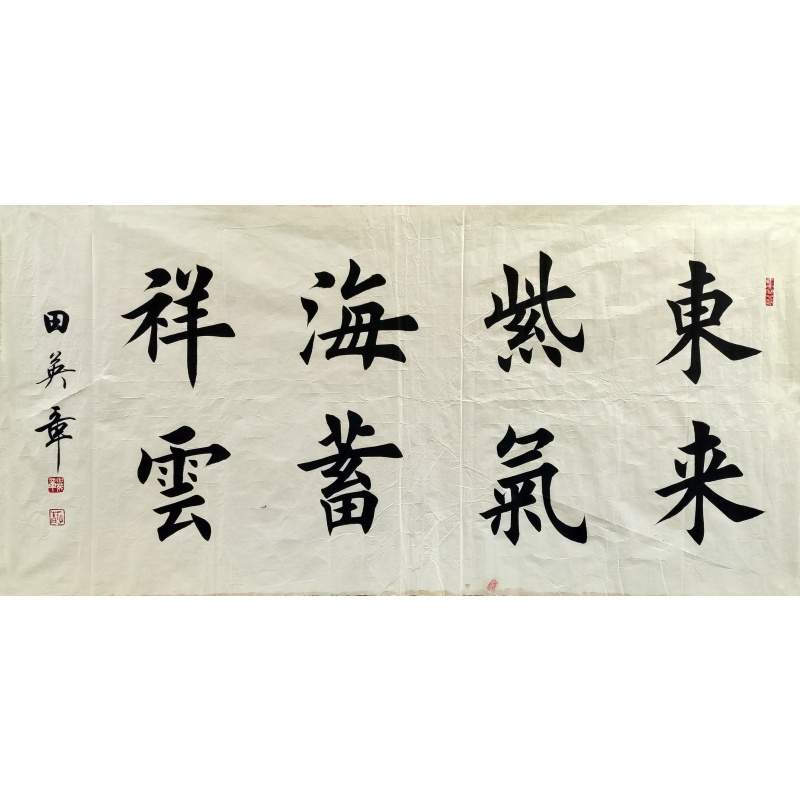 東来
紫氣
海蓄
祥雲
田英章